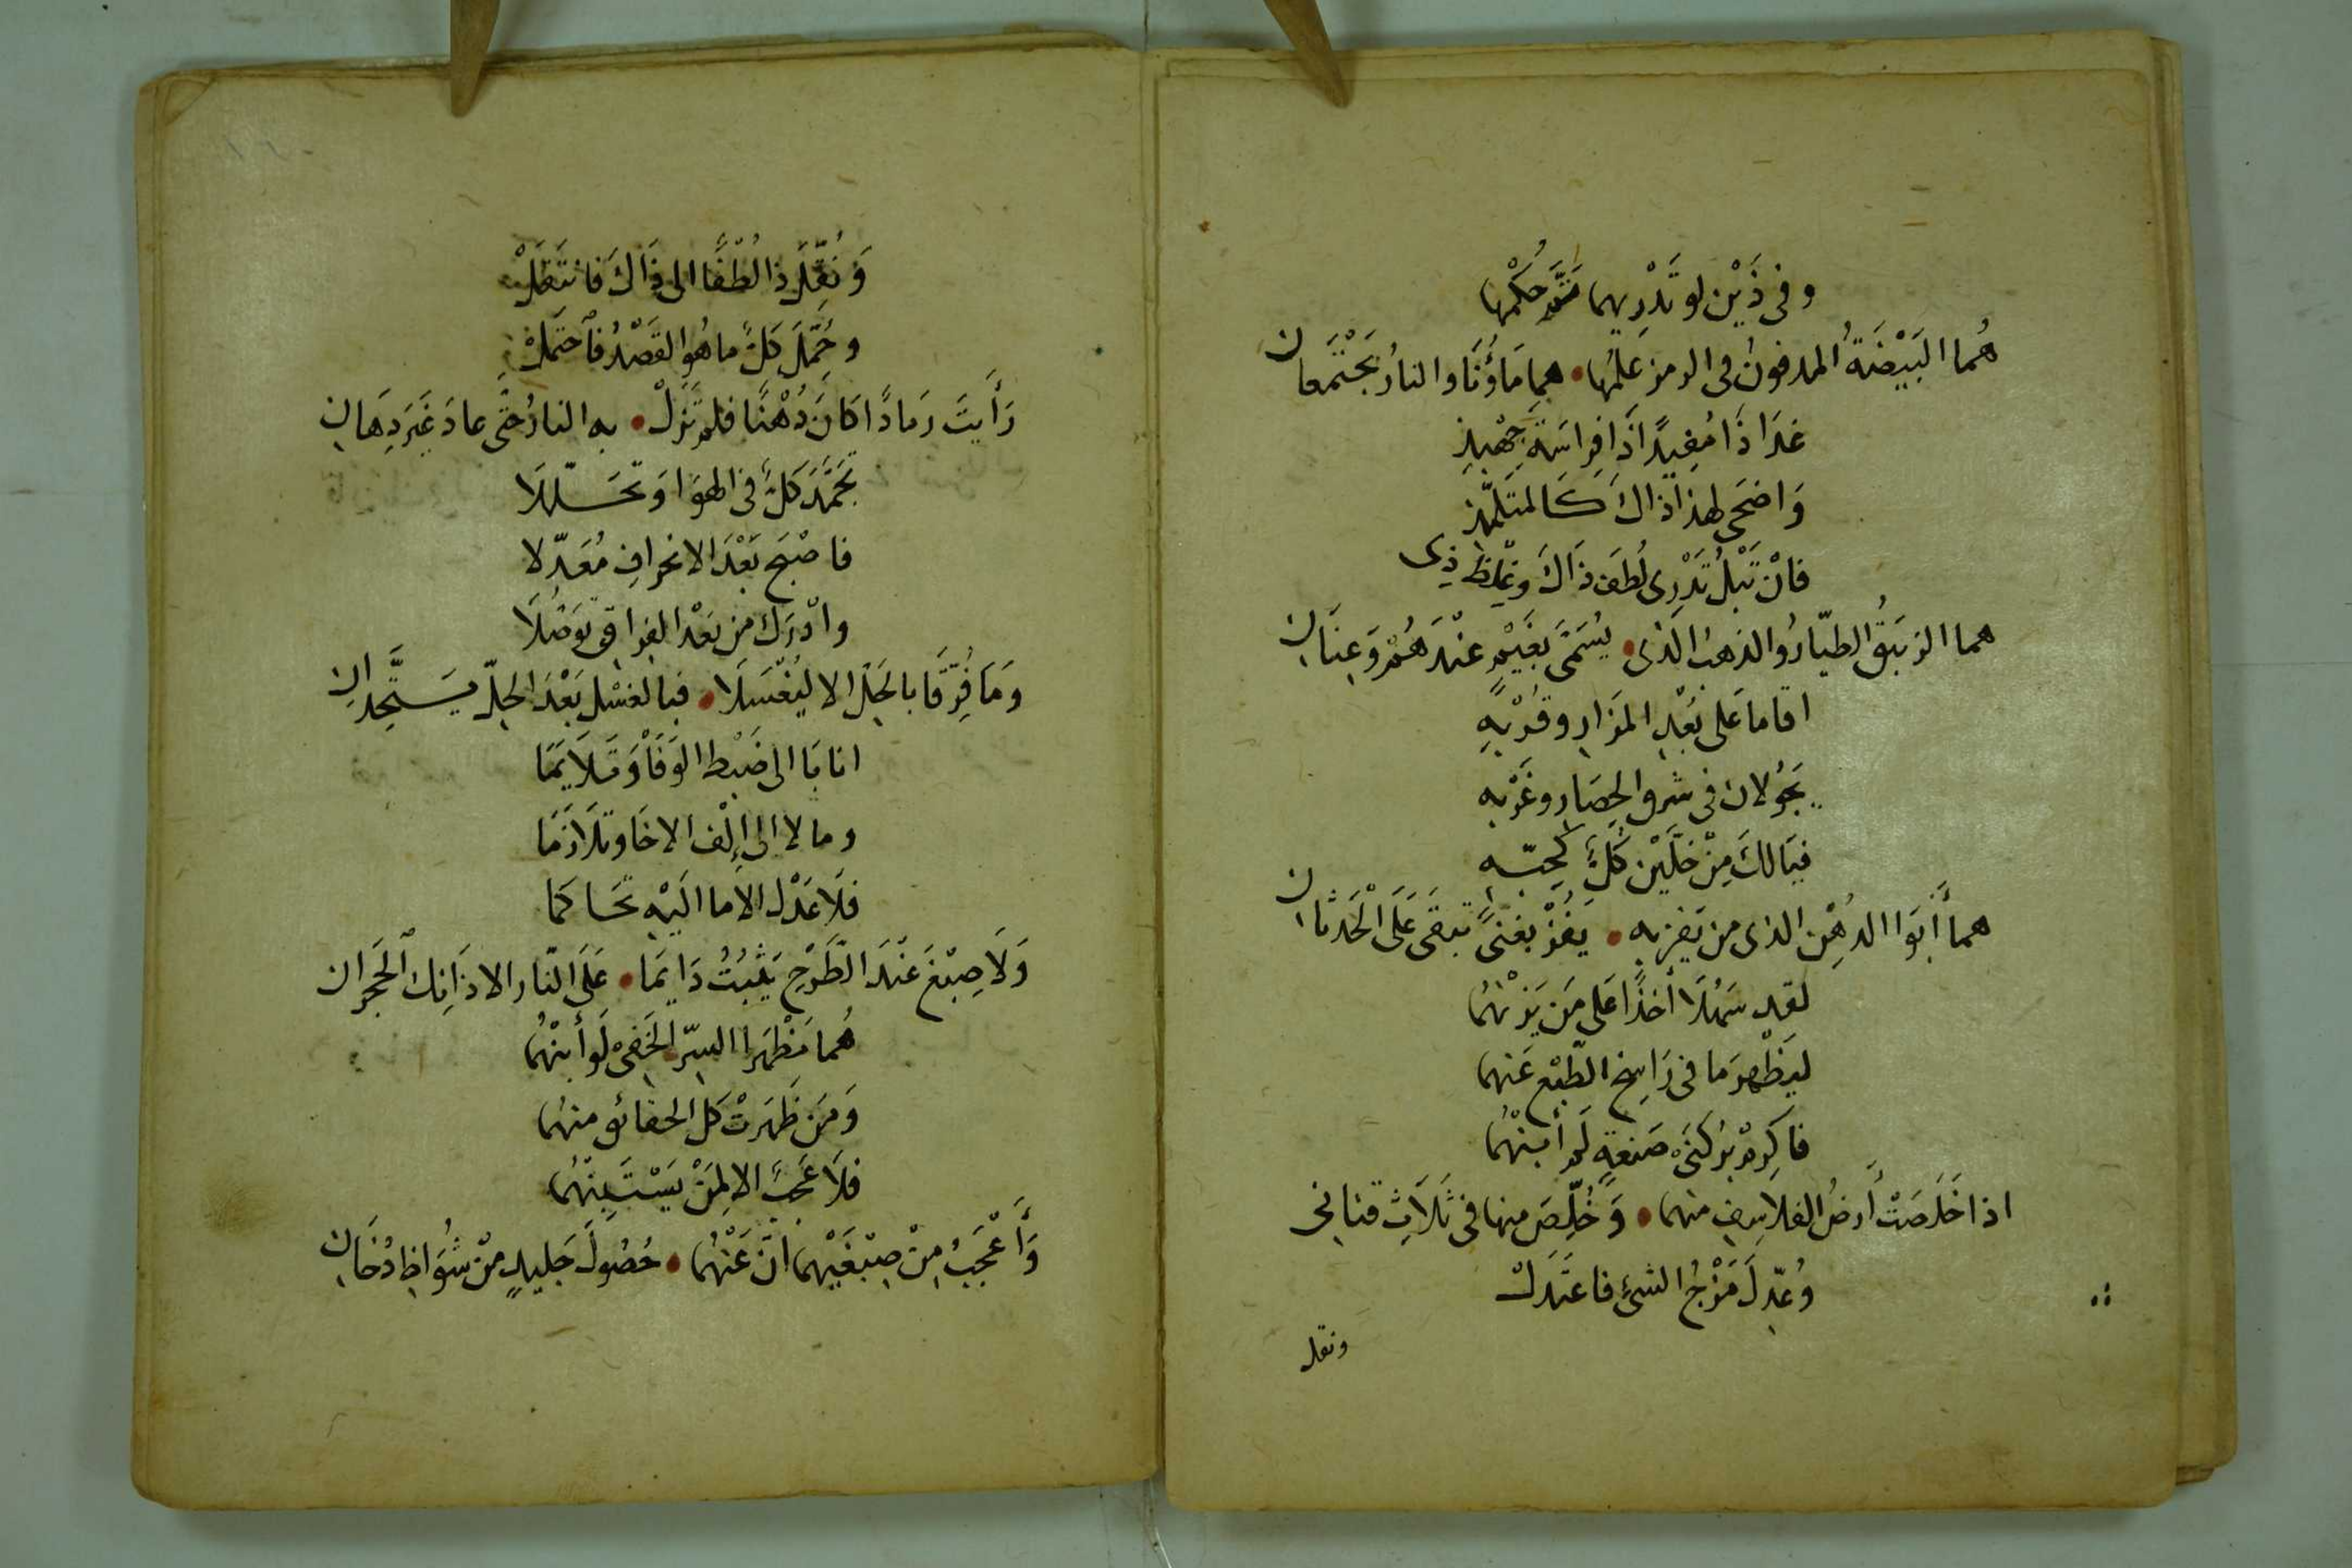 وفى ذَيْن لو تَدْرِيهما سَرُّ حُكْمِها
هُما البَيْضَةُ المدفونُ فى الرمز عِلمُها • هما مَاؤُنَا والنارُ يَجْتَمعانِ
غدَا ذَا مُفِيدًا ذَا فِراسَةِ جِهْبِذِ
وَاضحَى لهذا ذاكَ كَالمتَلَمِّذِ
فانْ تَبْلُ تَدْرِى لُطفَ ذَاكَ وغِلظَ ذِى
هما الزيبَقُ الطيّارُ والذهبُ الَّذى • يُسَمَّى بغَيْمٍ عنْدَهُمْ وَعِنَانِ
اقاما عَلى بُعْدِ المَزارِ وقُرْبِهِ
يَجُولانِ فى شرق الحِصَارِ وغَرْبِهِ
فيَا لكَ مِنْ خِلَّيْنِ كُلٌّ كَحِبِّهِ
هما أَبَوَا الدُهْنِ الذى من يَفز به • يَفُزْ بِغِنىً يَبقَى عَلَى الْحَدَثانِ
لقد سَهُلَا أخذًا عَلى مَن يَرُمْهُما
ليَظْهرَ ما فى رَاسِخِ الطّبْعِ عَنهما
فاكرِمْ برُكنَىْ صَنعةٍ لَمْ أُبِنْهُما
اذا خَلَصَتْ أَرضُ الفلاسِفِ منهما • وَخُلِّصَ منها فى ثَلَاثِ قنانى
وُعِّدلَ مَزْجُ الشئِ فاعتَدَلْ
ونقل
وَنُقِّلَ ذا لُطْفًا الى ذَاكَ فانتَقَلْ
وحُمِّلَ كلٌّ ما هُو القَصْدُ فاحتَمَلْ
رَأَيتَ رَمادًا كانَ دُهْنًا فلم تَزَلْ • به النارُ حتَّى عادَ غَيرَ دِهَانِ
تجَمَّدَ كلٌّ فى الهوَا وَتحَلّلَا
فاصْبَح بَعْدَ الانحرافِ مُعَدّلا
وادْرَكَ من بَعْدِ الفِراقِ تَوَصُّلَا
وَمَا فُرِّقَا بالحَلِّ الا ليُغْسَلَا • فبالغسْلِ بَعْدَ الحلِّ يَتَّحِدَانِ
انابَا الى ضَبْطِ الوَفَاْ وَتَلَايَمَا
ومالا الى إِلْف الاخَا وتَلَازَمَا
فلَا عَدْلَ الا ما الَيْهِ تَحَاكَما
وَلَا صِبْغَ عنْدَ الطَّرْحِ يَثْبُتُ دَايمَا • عَلَى النّارِ الا ذَانِكَ الْحَجَرانِ
هُما مَظْهَرا السِّرِّ الخَفِىْ لَو أُبِنْهُما
وَمَن ظَهَرَتْ كلُّ الحقائق منهُما
فلَا عَجَبَ الا لِمَنْ يَسْتَبِنْهُما
وَأَعْجَبُ مِنْ صِبْغَيْهما انَّ عَنْهُما • حُصُولَ جَليدٍ مِنْ شُوَاظِ دُخَانِ